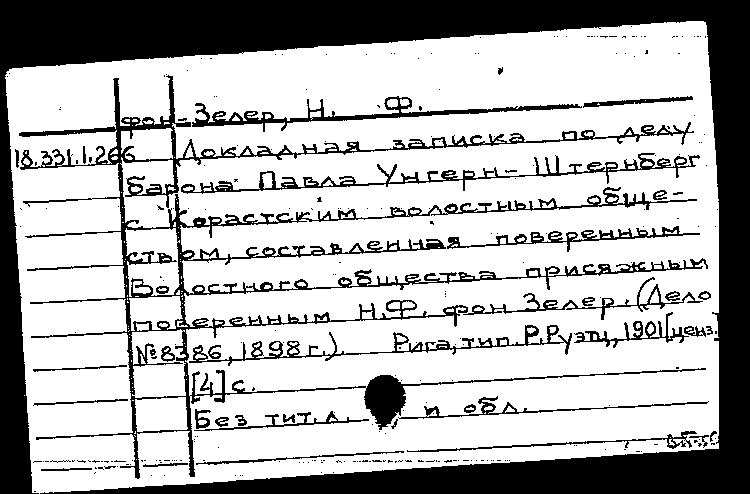 фон-Зелер, Н. Ф.
18.331.1.266 Докладная записка по делу
барона Павла Унгерн-Штернберг
с Корастским волостным обще-
ством, составленная поверенным
Волостного общества присяжным
поверенным Н.Ф. фон Зелер. (Дело
№8386, 1898 г.). Рига, тип. Р.Руэтц, 1901 [ценз.]
[4] с.
Без тит. л. и обл.